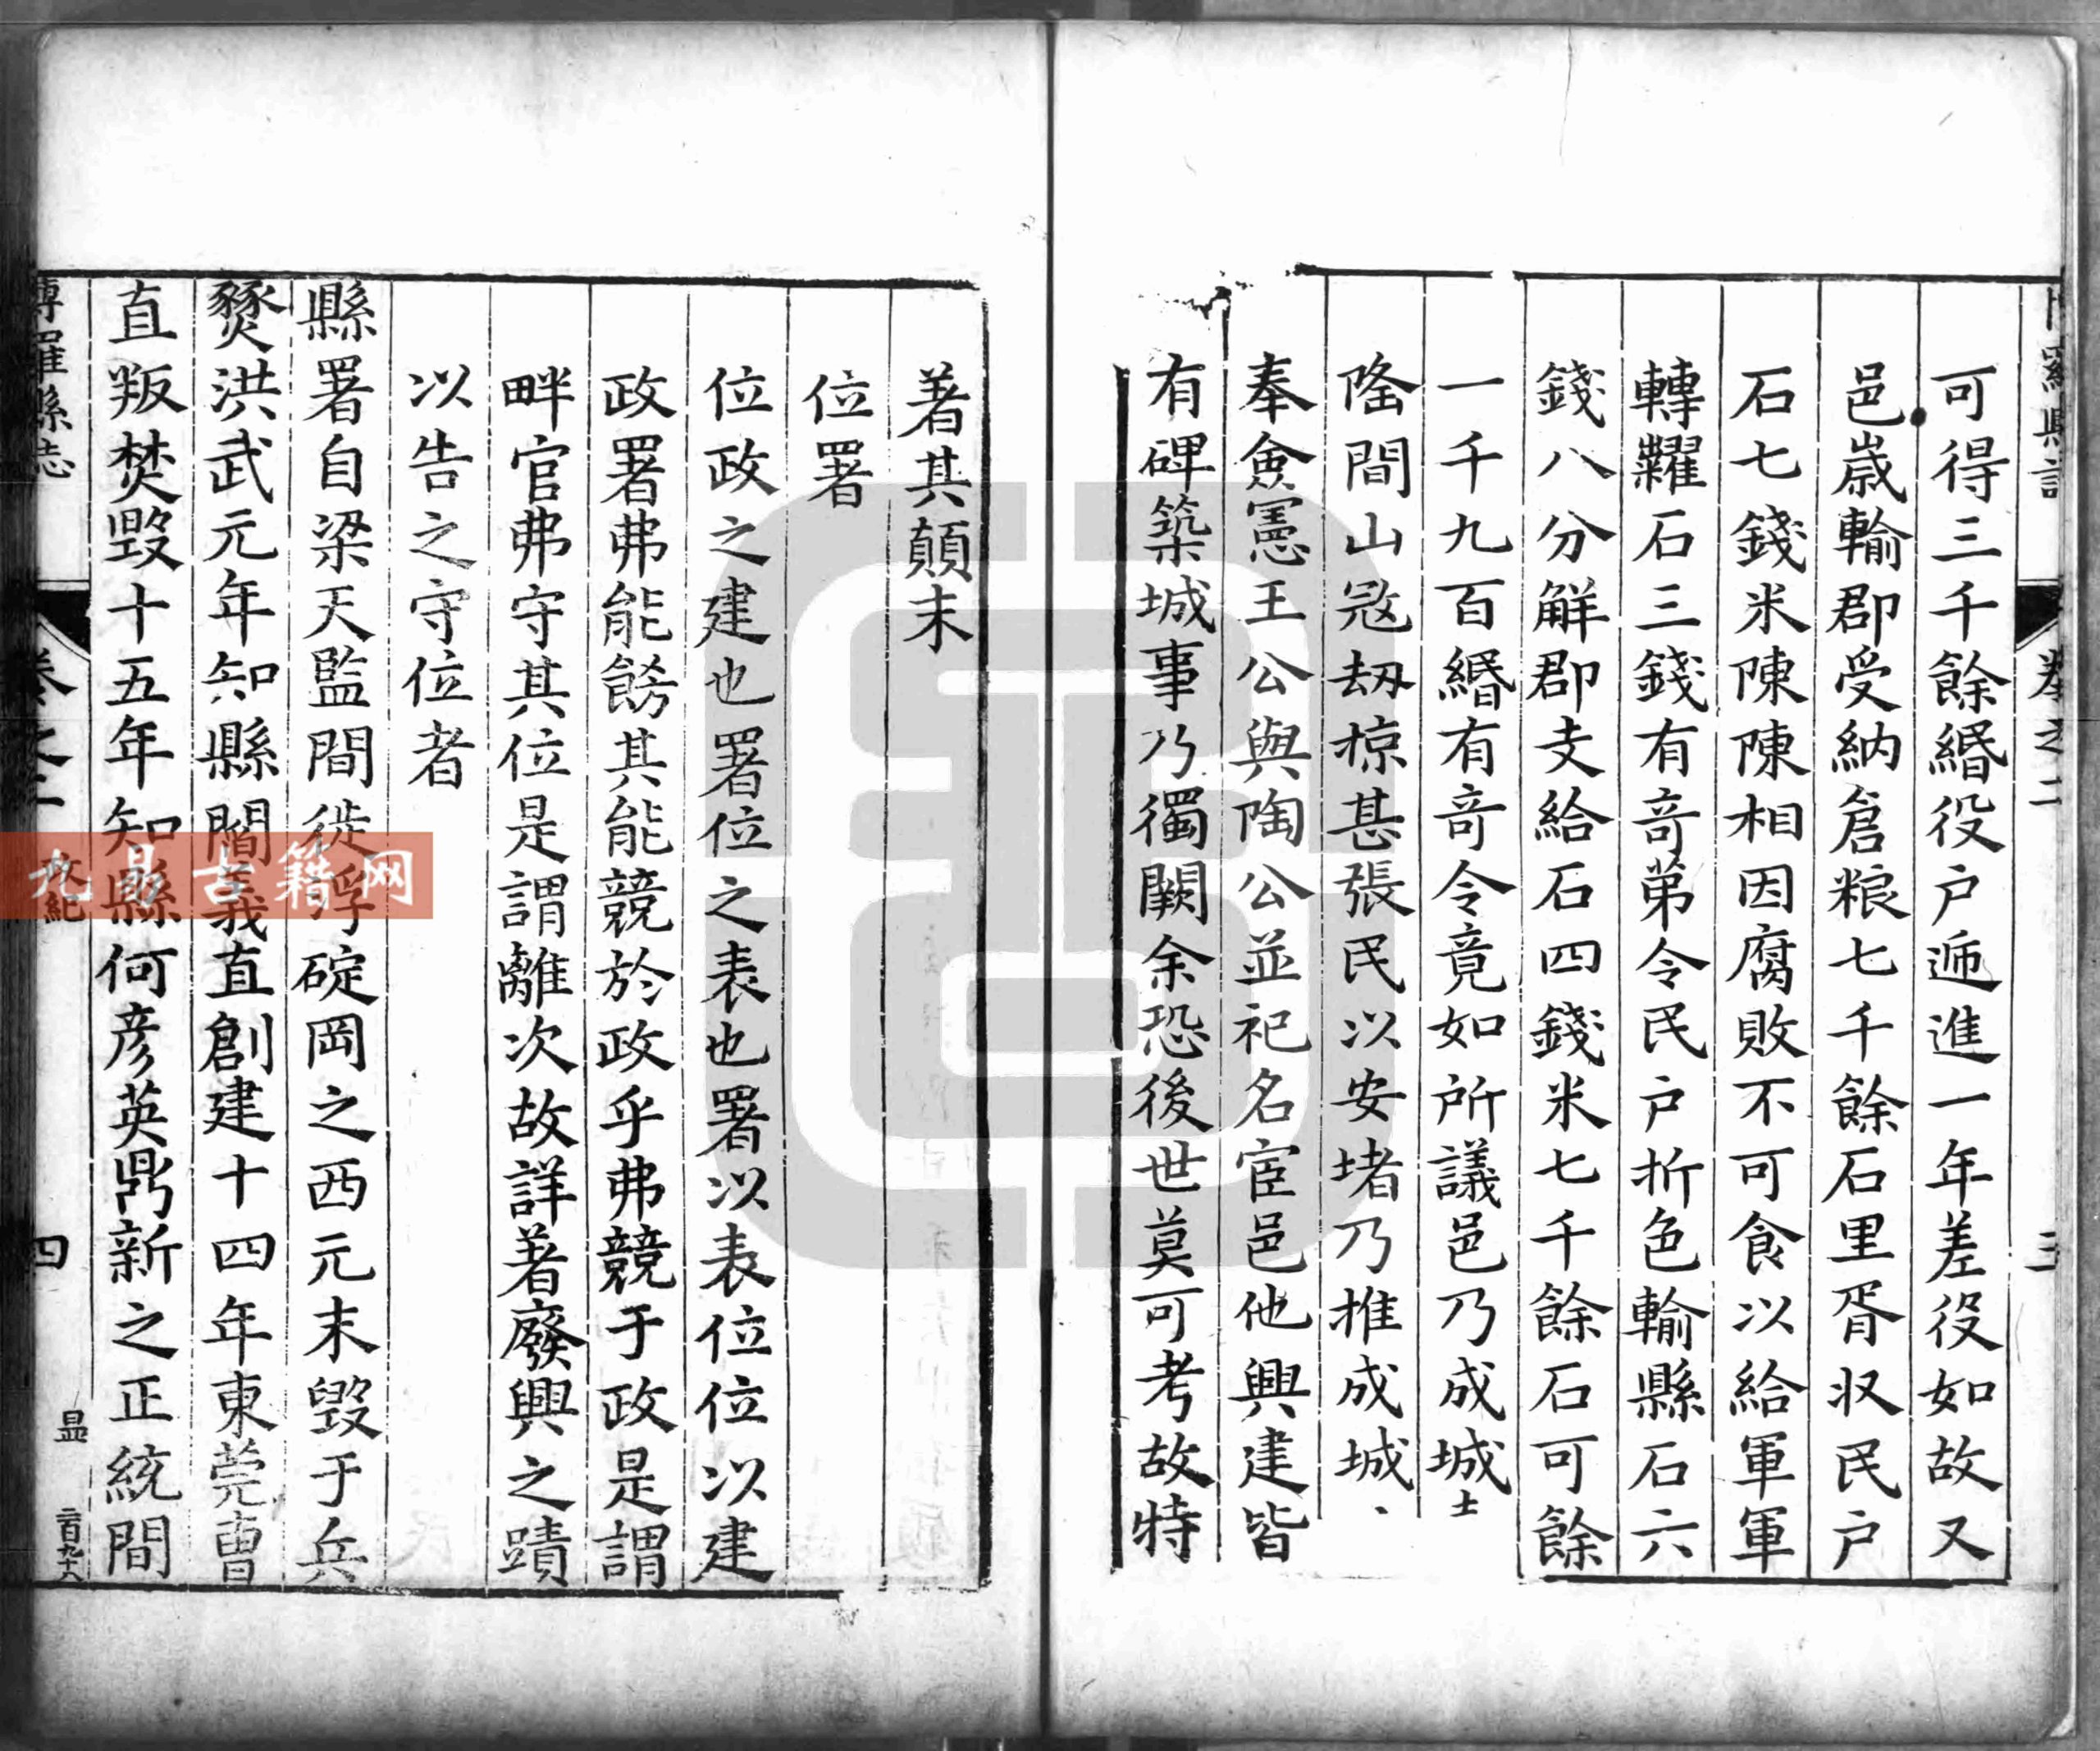 博羅縣誌 卷之二 三
可得三千餘緡役户遞進一年差役如故又
邑歲輸郡受納倉粮七千餘石里胥収民户
石七錢米陳陳相因腐敗不可食以給軍軍
轉糶石三錢有竒苐令民户折色輸縣石六
錢八分解郡支給石四錢米七千餘石可餘
一千九百緡有竒令竟如所議邑乃成城士
隆間山冦刼掠甚張民以安堵乃推成城
奉僉憲王公與陶公並祀名宦邑他興建皆
有碑築城事乃獨闕余恐後世莫可考故特
著其顛末
位署
位政之建也署位之表也署以表位位以建
政署弗能餝其能競於政乎弗競于政是謂
畔官弗守其位是謂離次故詳著廢興之蹟
以告之守位者
縣署自梁天監間徙浮碇岡之西元末毀于兵
燹洪武元年知縣閻義直創建十四年東莞曺
直叛焚毀十五年知縣何彥英鼎新之正統間
博羅縣志 卷之二 政紀 四 昷 三百九十八
九易古籍网